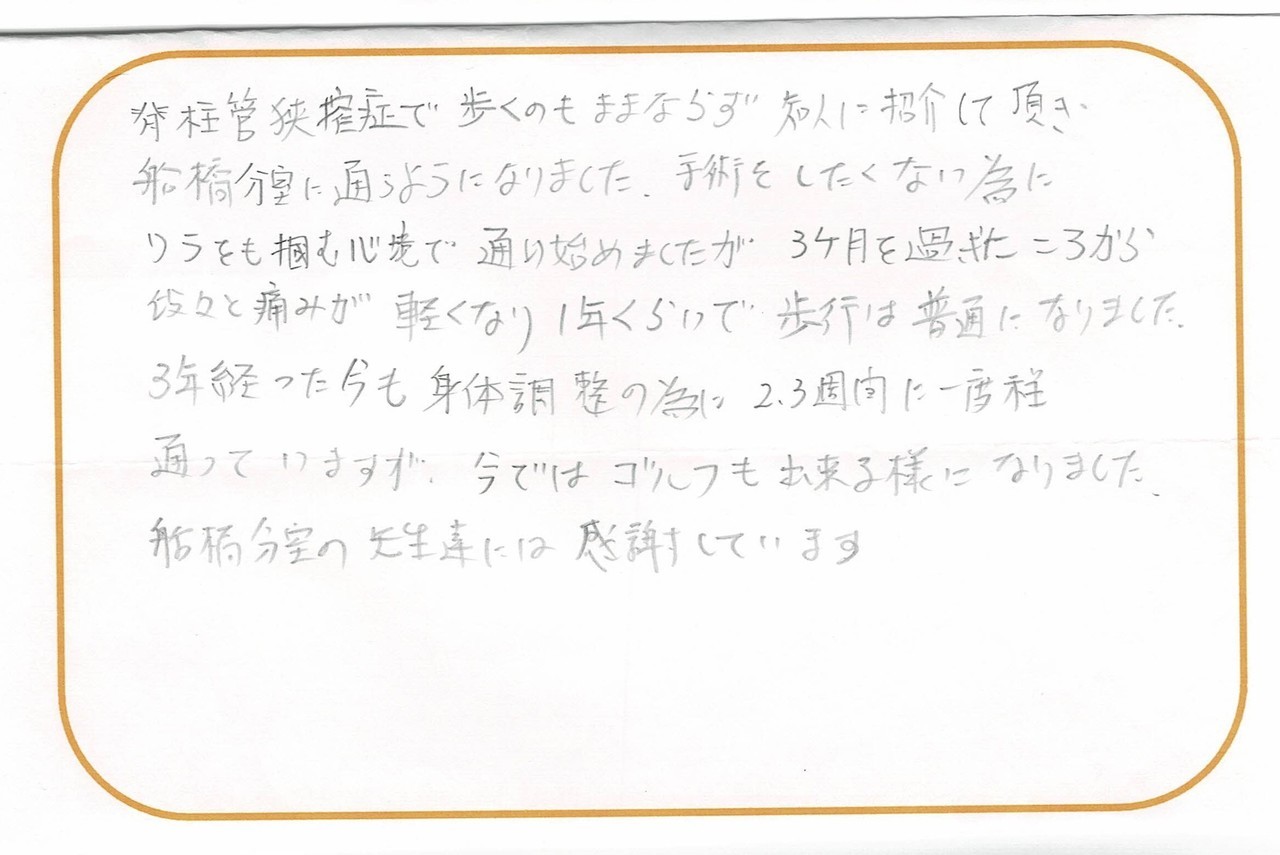 脊柱管狭窄症で歩くのもままならず知人に紹介して頂き
船橋分室に通うようになりました。手術をしたくない為に
ワラをも掴む心境で通い始めましたが3ケ月を過ぎたころから
段々と痛みが軽くなり1年くらいで歩行は普通になりました。
3年経った今も身体調整の為に2.3週間に一度程
通っていますが、今ではゴルフも出来る様になりました。
船橋分室の先生達には感謝しています